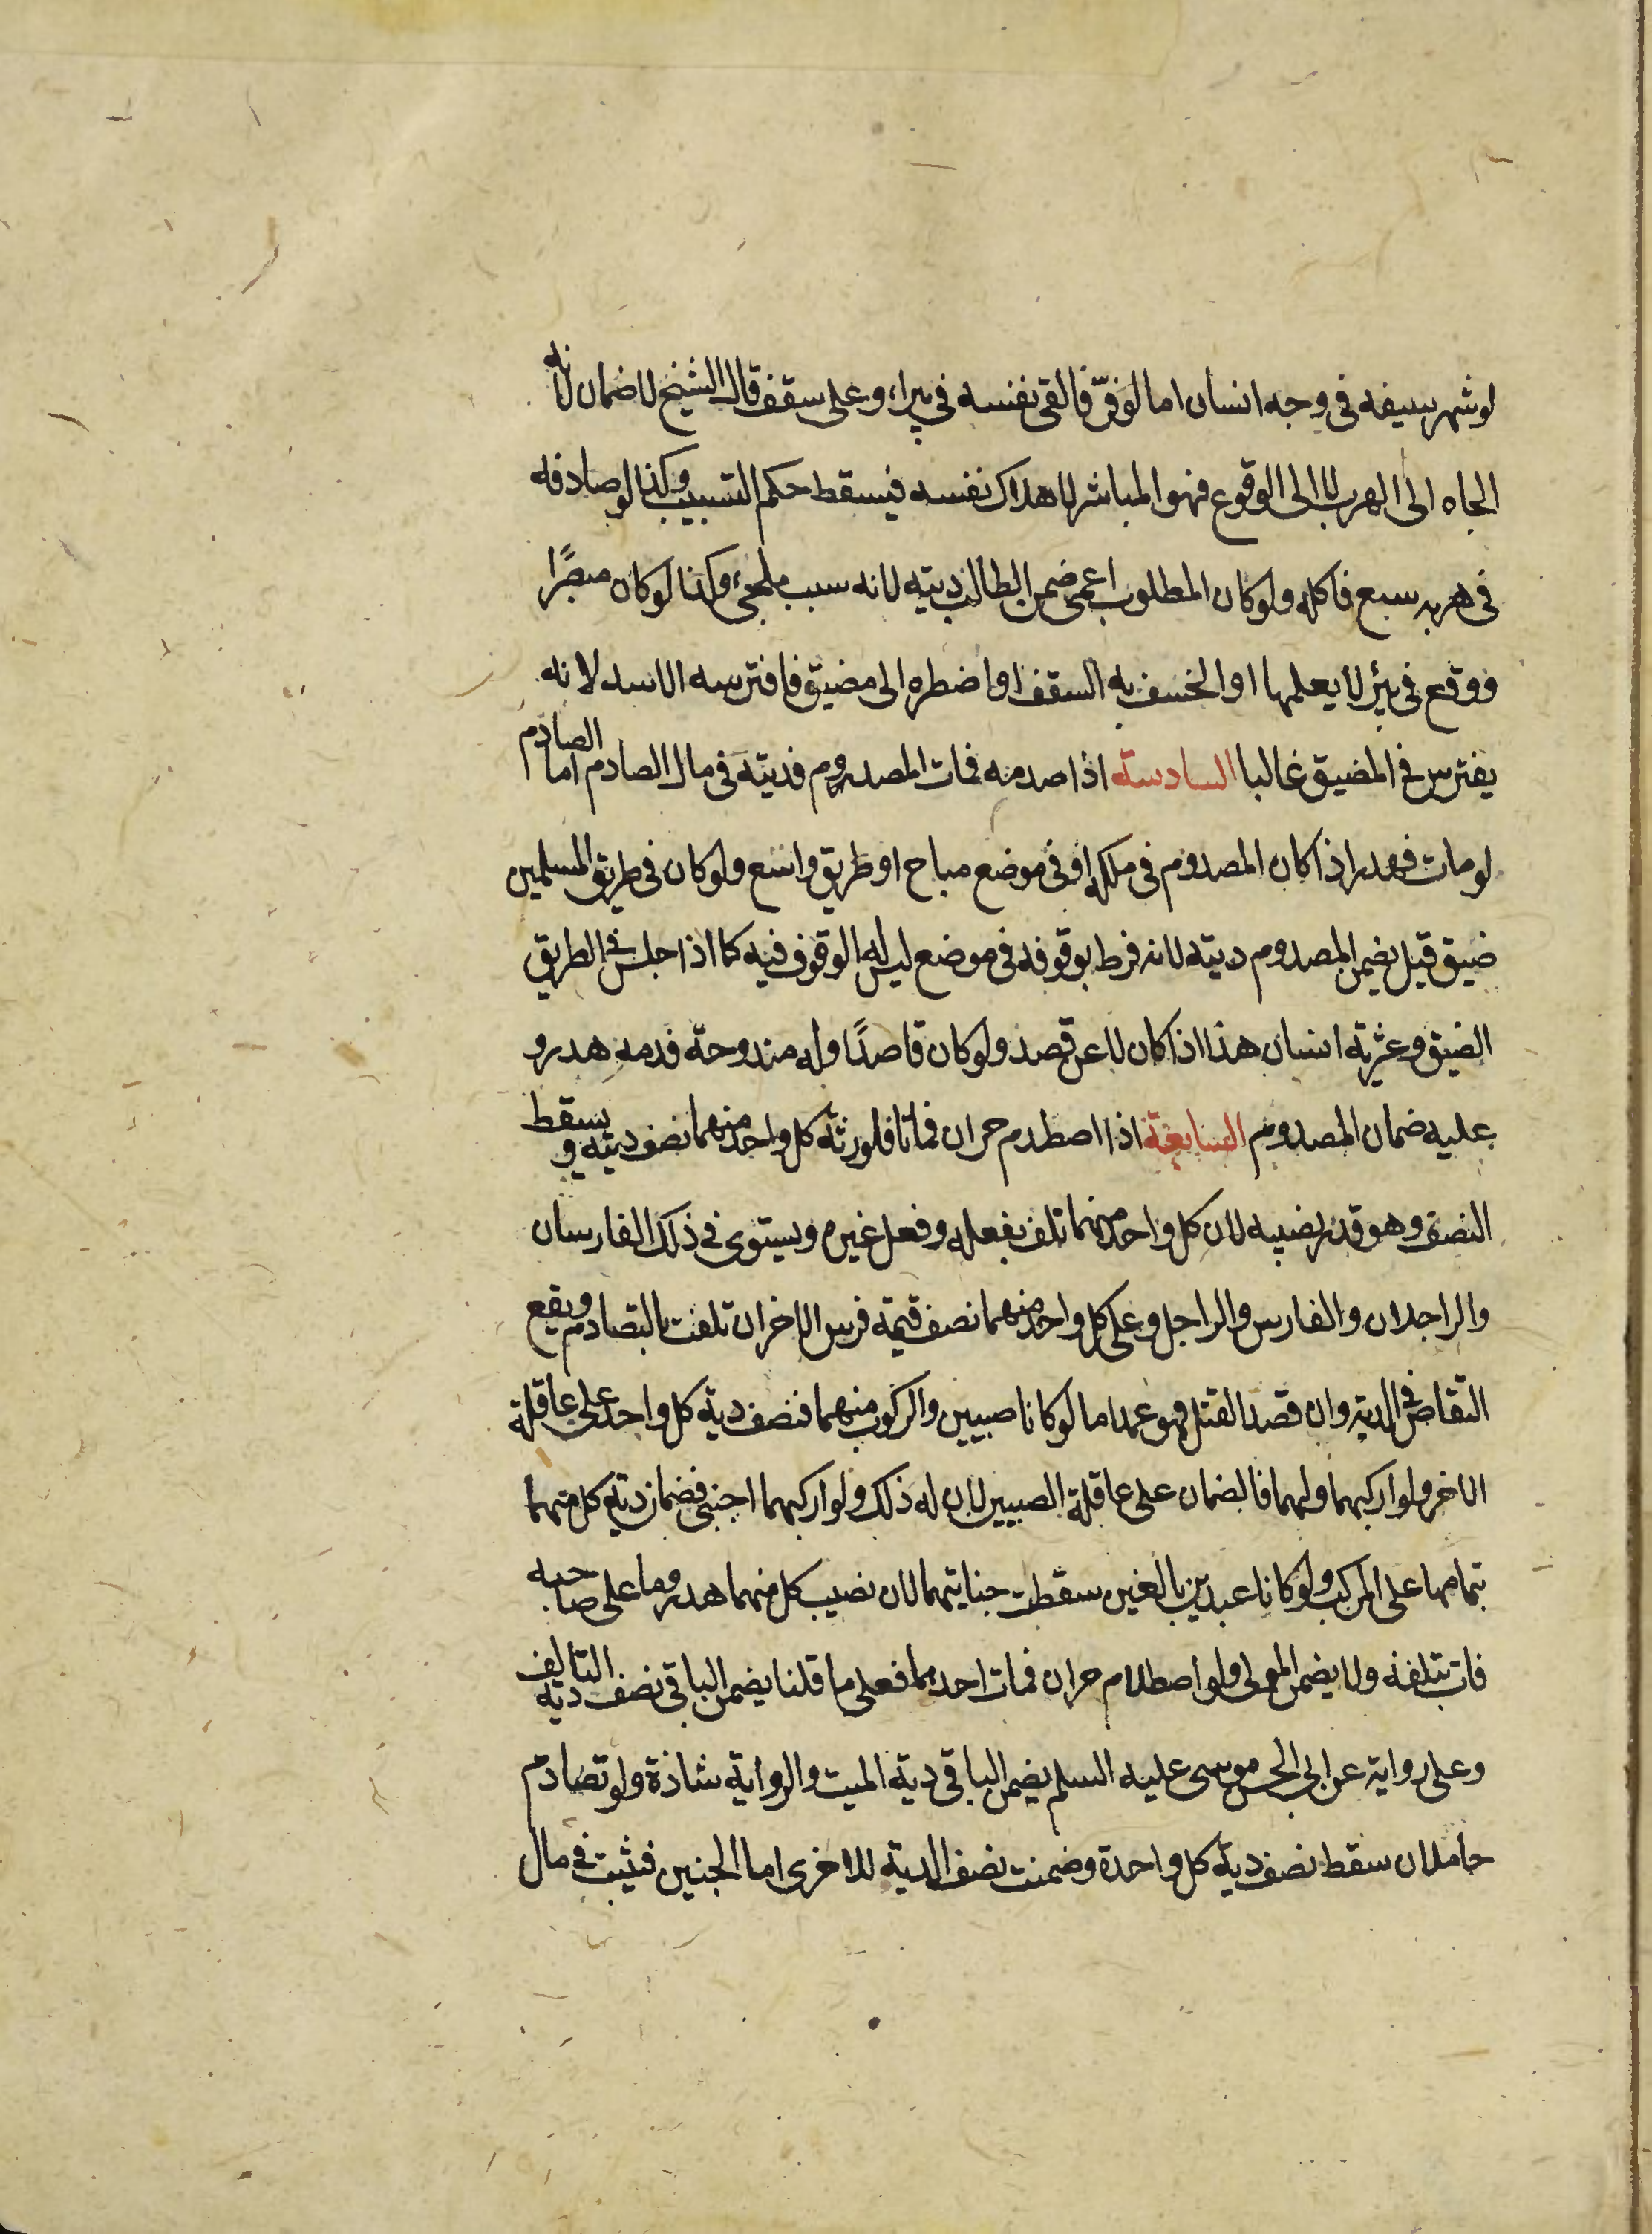 لو شهر سيفه في وجه انسان اما لو فرّ فالقى نفسه في بيراء وعلى سقف قال الشيخ لا ضمان لانه
الجاه الى الهرب لا الى الوقوع فهو المباشر لاهلاك نفسه فيسقط حكم التسبيب وكذا لو صادفه
في هربه سبع فاكله ولو كان المطلوب اعمى ضمن الطالب ديته لانه سبب ملجئ وكذا لو كان مبصرًا
فوقع في بئر لا يعلمها او انخسف به السقف او اضطره الى مضيق فافترسه الاسد لانه
يفترس في المضيق غالبا السادسة اذا صدمه فمات المصدوم فديته في مال الصادم اما الصادم
لو مات فهدر اذا كان المصدوم في ملكه او في موضع مباح او طريق واسع ولو كان في طريق المسلمين
ضيق قيل يضمن المصدوم ديته لانه فرط بوقوفه في موضع ليس له الوقوف فيه كما اذا جلس في الطريق
الضيق وعثر به انسان هذا اذا كان لا عن قصد ولو كان قاصدًا وله مندوحة فدمه هدر و
عليه ضمان المصدوم السابعة اذا اصطدم حران فماتا فلورثة كل واحد منهما نصف ديته ويسقط
النصف وهو قدر نصيبه لان كل واحد منهما تلف بفعله وفعل غيره ويستوى في ذلك الفارسان
والراجلان والفارس والراجل وعلى كل واحد منهما نصف قيمة فرس الاخر ان تلفت بالتصادم ويقع
التقاص في الدية وان قصد القتل فهو عمد اما لو كانا صبيين والركوب منهما فنصف دية كل واحد على عاقلة
الاخر ولو اركبهما وليهما فالضمان على عاقلة الصبيين لان له ذلك ولو اركبهما اجنبى فضمان دية كل منهما
بتمامها على المركب ولو كانا عبدين بالغين سقطت جنايتهما لان نصيب كل منهما هدر وما على صاحبه
فات بتلفه ولا يضمن المولى ولو اصطدم حران فمات احدهما فعلى ما قلنا يضمن الباقى نصف دية التالف
وعلى رواية عن ابى الحسن موسى عليه السلم يضمن الباقى دية الميت والرواية شاذة ولو تصادم
حاملان سقط نصف دية كل واحدة وضمنت نصف الدية للاخرى اما الجنين فيثبت في مال